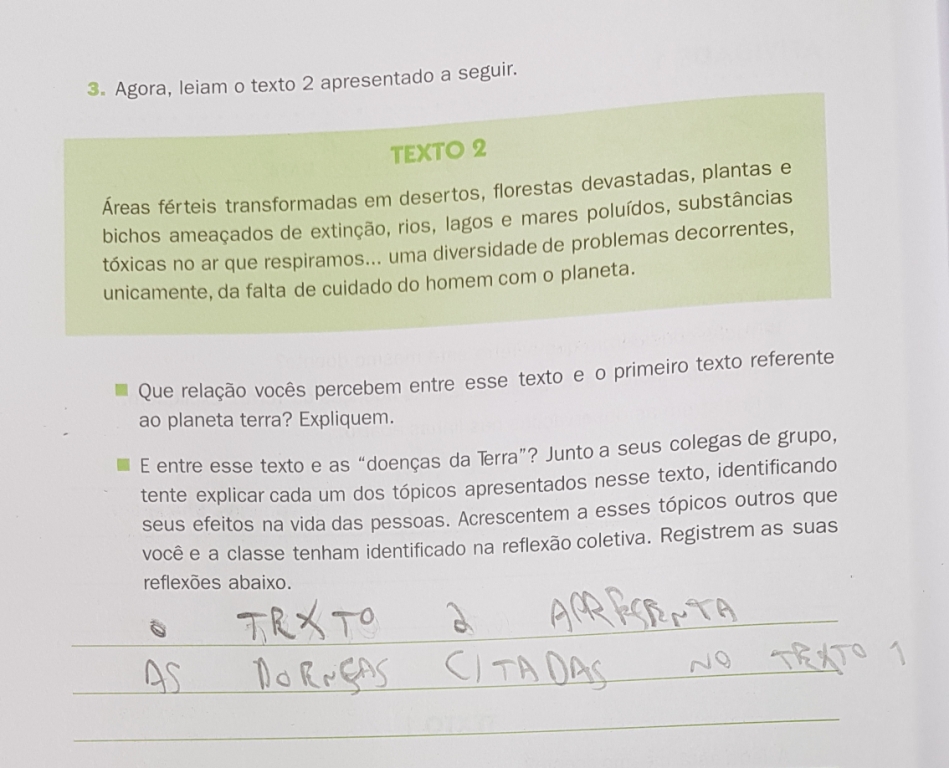 3. Agora, leiam o texto 2 apresentado a seguir.
TEXTO 2
Áreas férteis transformadas em desertos, florestas devastadas, plantas e
bichos ameaçados de extinção, rios, lagos e mares poluídos, substâncias
tóxicas no ar que respiramos... uma diversidade de problemas decorrentes,
unicamente, da falta de cuidado do homem com o planeta.
Que relação vocês percebem entre esse texto e o primeiro texto referente
ao planeta terra? Expliquem.
E entre esse texto e as “doenças da Terra”? Junto a seus colegas de grupo,
tente explicar cada um dos tópicos apresentados nesse texto, identificando
seus efeitos na vida das pessoas. Acrescentem a esses tópicos outros que
você e a classe tenham identificado na reflexão coletiva. Registrem as suas
reflexões abaixo.
O TEXTO 2 APRESENTA
AS DOENÇAS CITADAS NO TEXTO 1